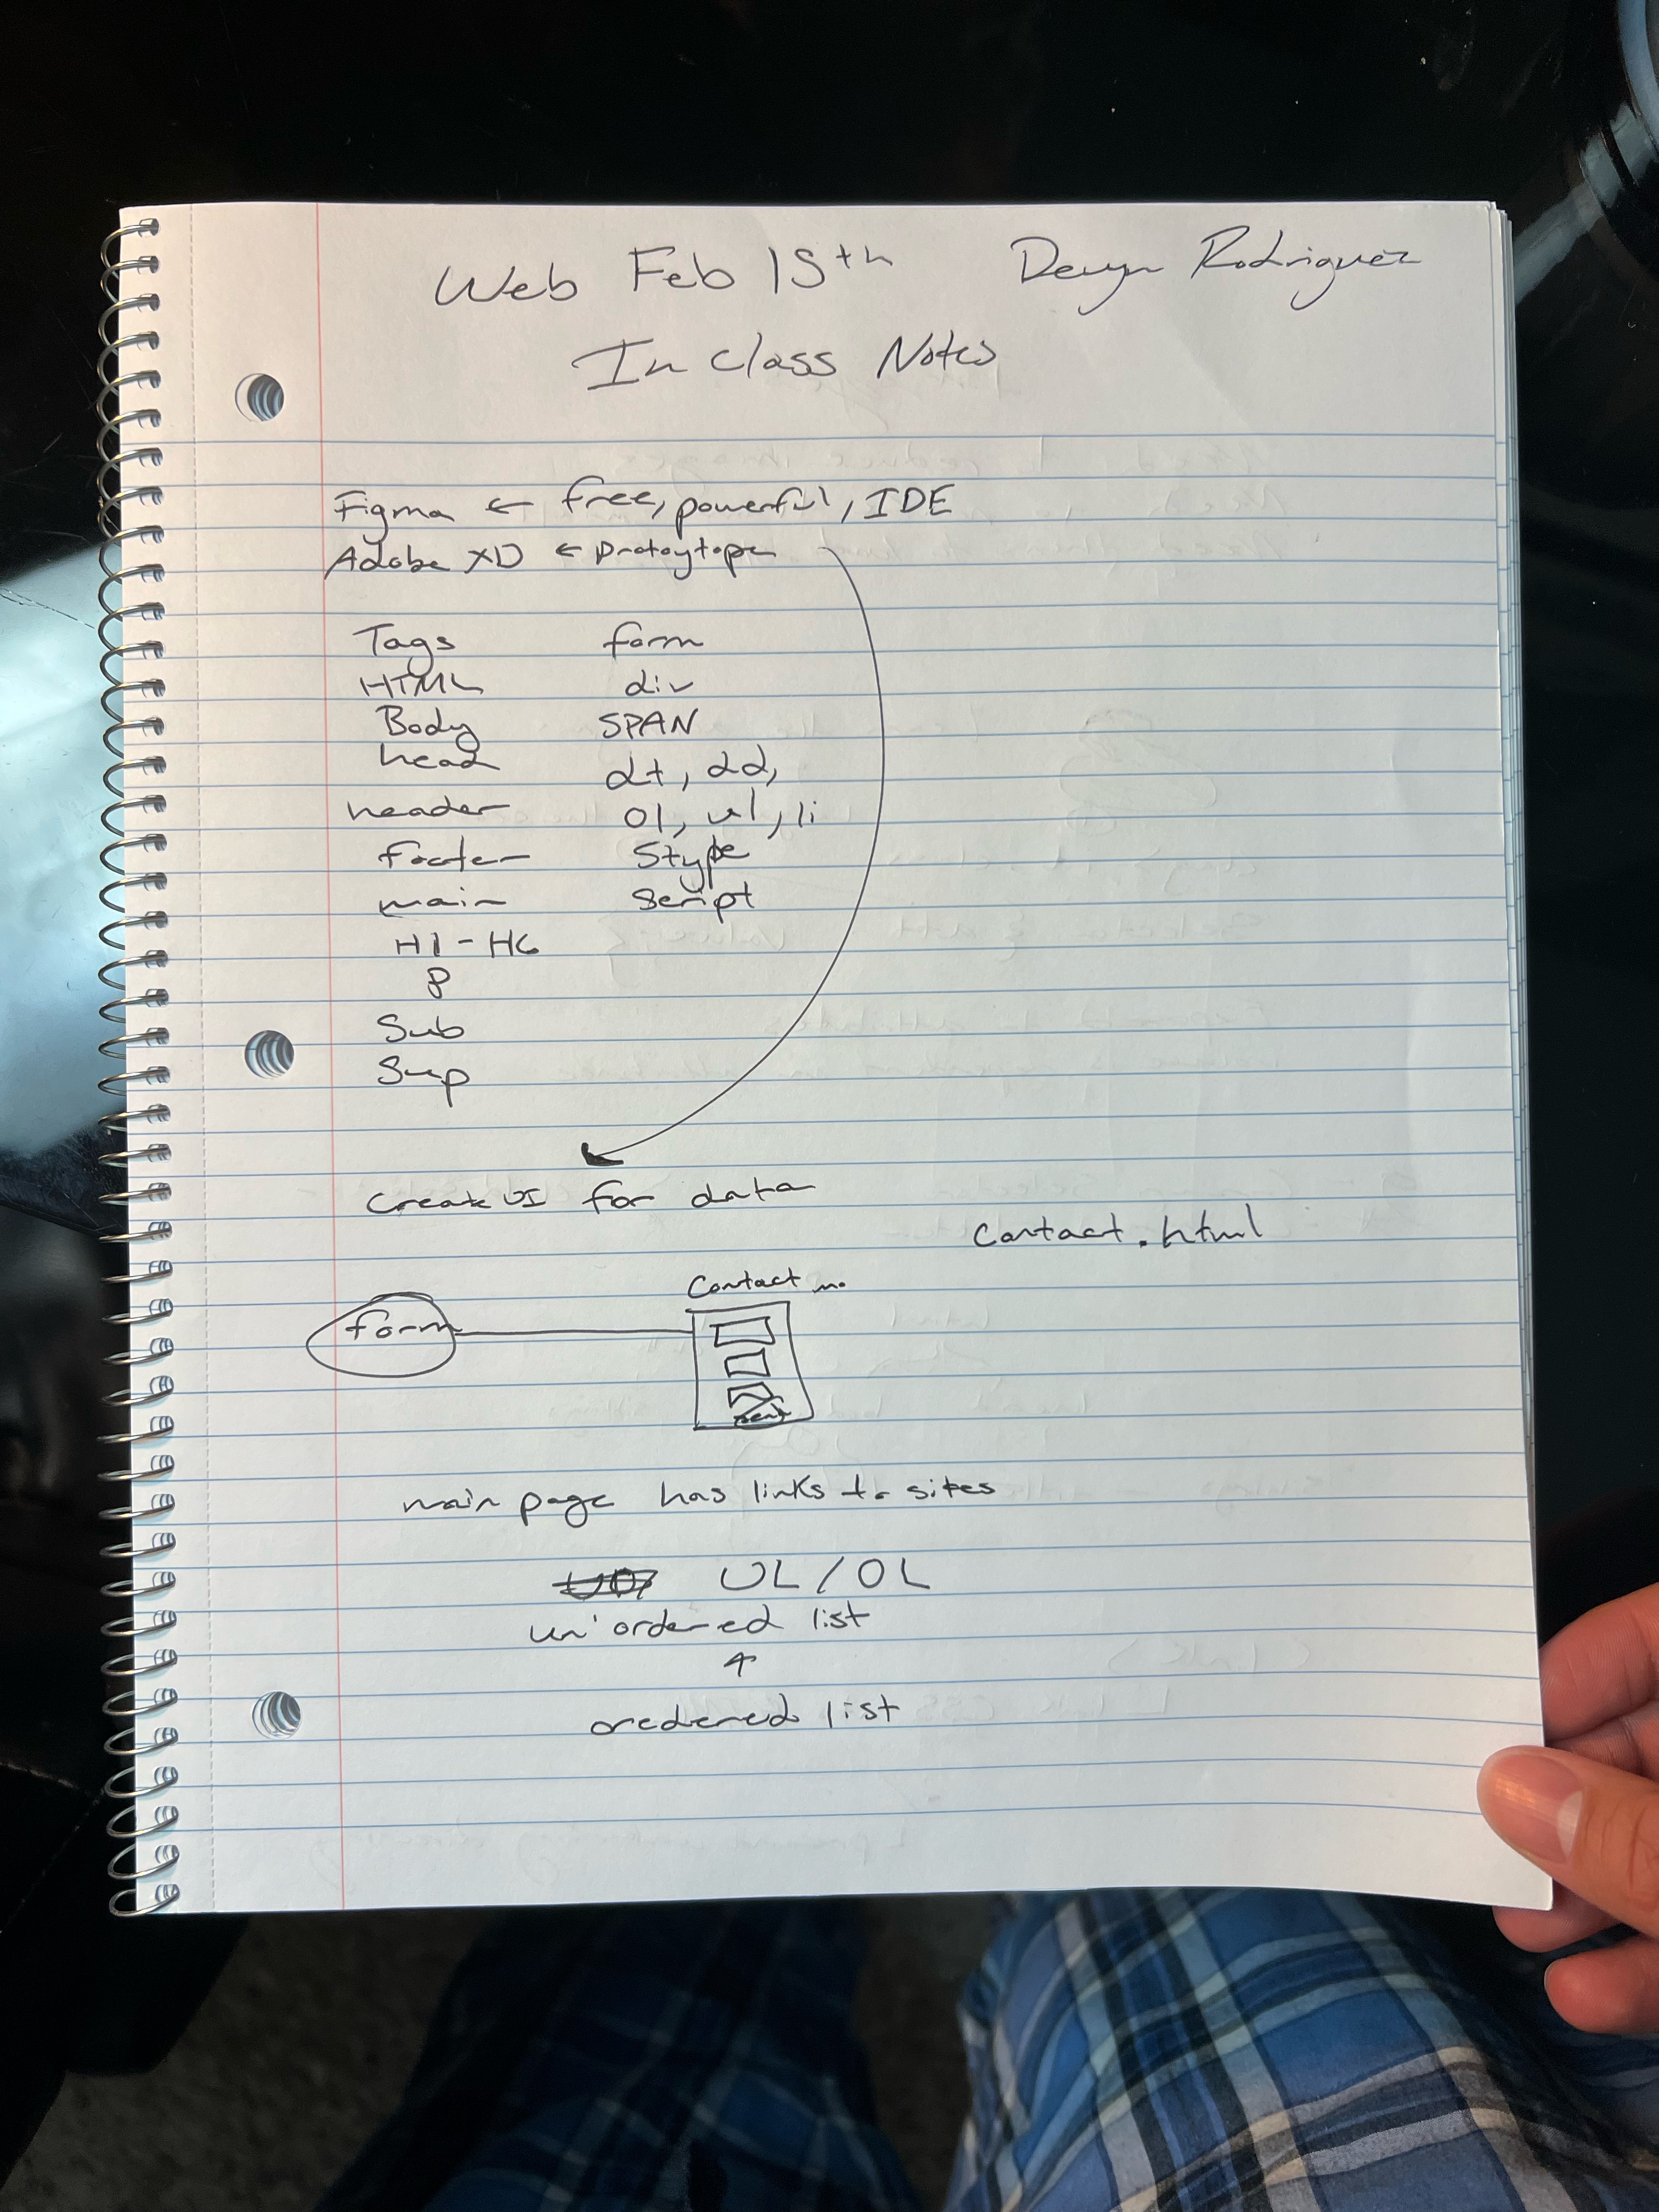 Web Feb 15th Devyn Rodriguez
In Class Notes
Figma ← free, powerful, IDE
Adobe XD ← Protoytope
Tags form
HTML div
Body SPAN
head dt, dd,
header ol, ul, li
footer Stype
main Script
H1 - H6
P
Sub
Sup
Create UI for data
Contact.html
Contact me
form
send
main page has links to sites
UL / OL
un'ordered list
↑
oredered list